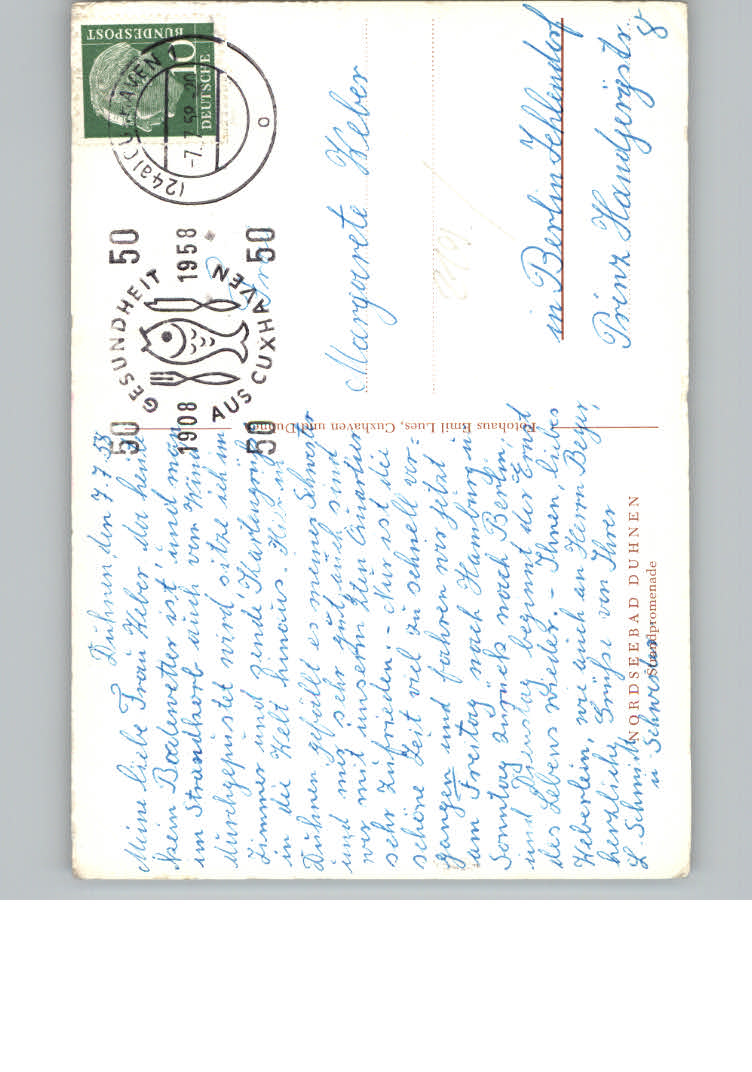 Duhnen, den 7.7.58
Meine liebe Frau Heber, da heute
kein Badewetter ist, und man
im Strandkorb auch vom Wind
durchgepustet wird sitze ich im
Zimmer und sende Kartengrüße
in die Welt hinaus. Hier in
Duhnen gefällt es meiner Schwester
und mir sehr gut, auch sind
wir mit unserm Quartier
sehr zufrieden. - Nur ist die
schöne Zeit viel zu schnell ver=
gangen und fahren wir jetzt
am Freitag nach Hamburg u.
Sonntag zurück nach Berlin,
und Dienstag beginnt der Ernst
des Lebens wieder. - Ihnen, liebes
Heberlein, wie auch an Herrn Beyer,
herzliche Grüße von Ihrer
L. Schmidt
u. Schwester
NORDSEEBAD DUHNEN
Strandpromenade
Fotohaus Emil Lues, Cuxhaven und Duhnen
50 1908 50
GESUNDHEIT
AUS CUXHAVEN
50 1958 50
(24a) CUXHAVEN 1
-7.7.58-20
o
DEUTSCHE
BUNDESPOST
10
Frau
Margarete Heber
in Berlin Zehlendorf
Prinz Handjerystr.
8